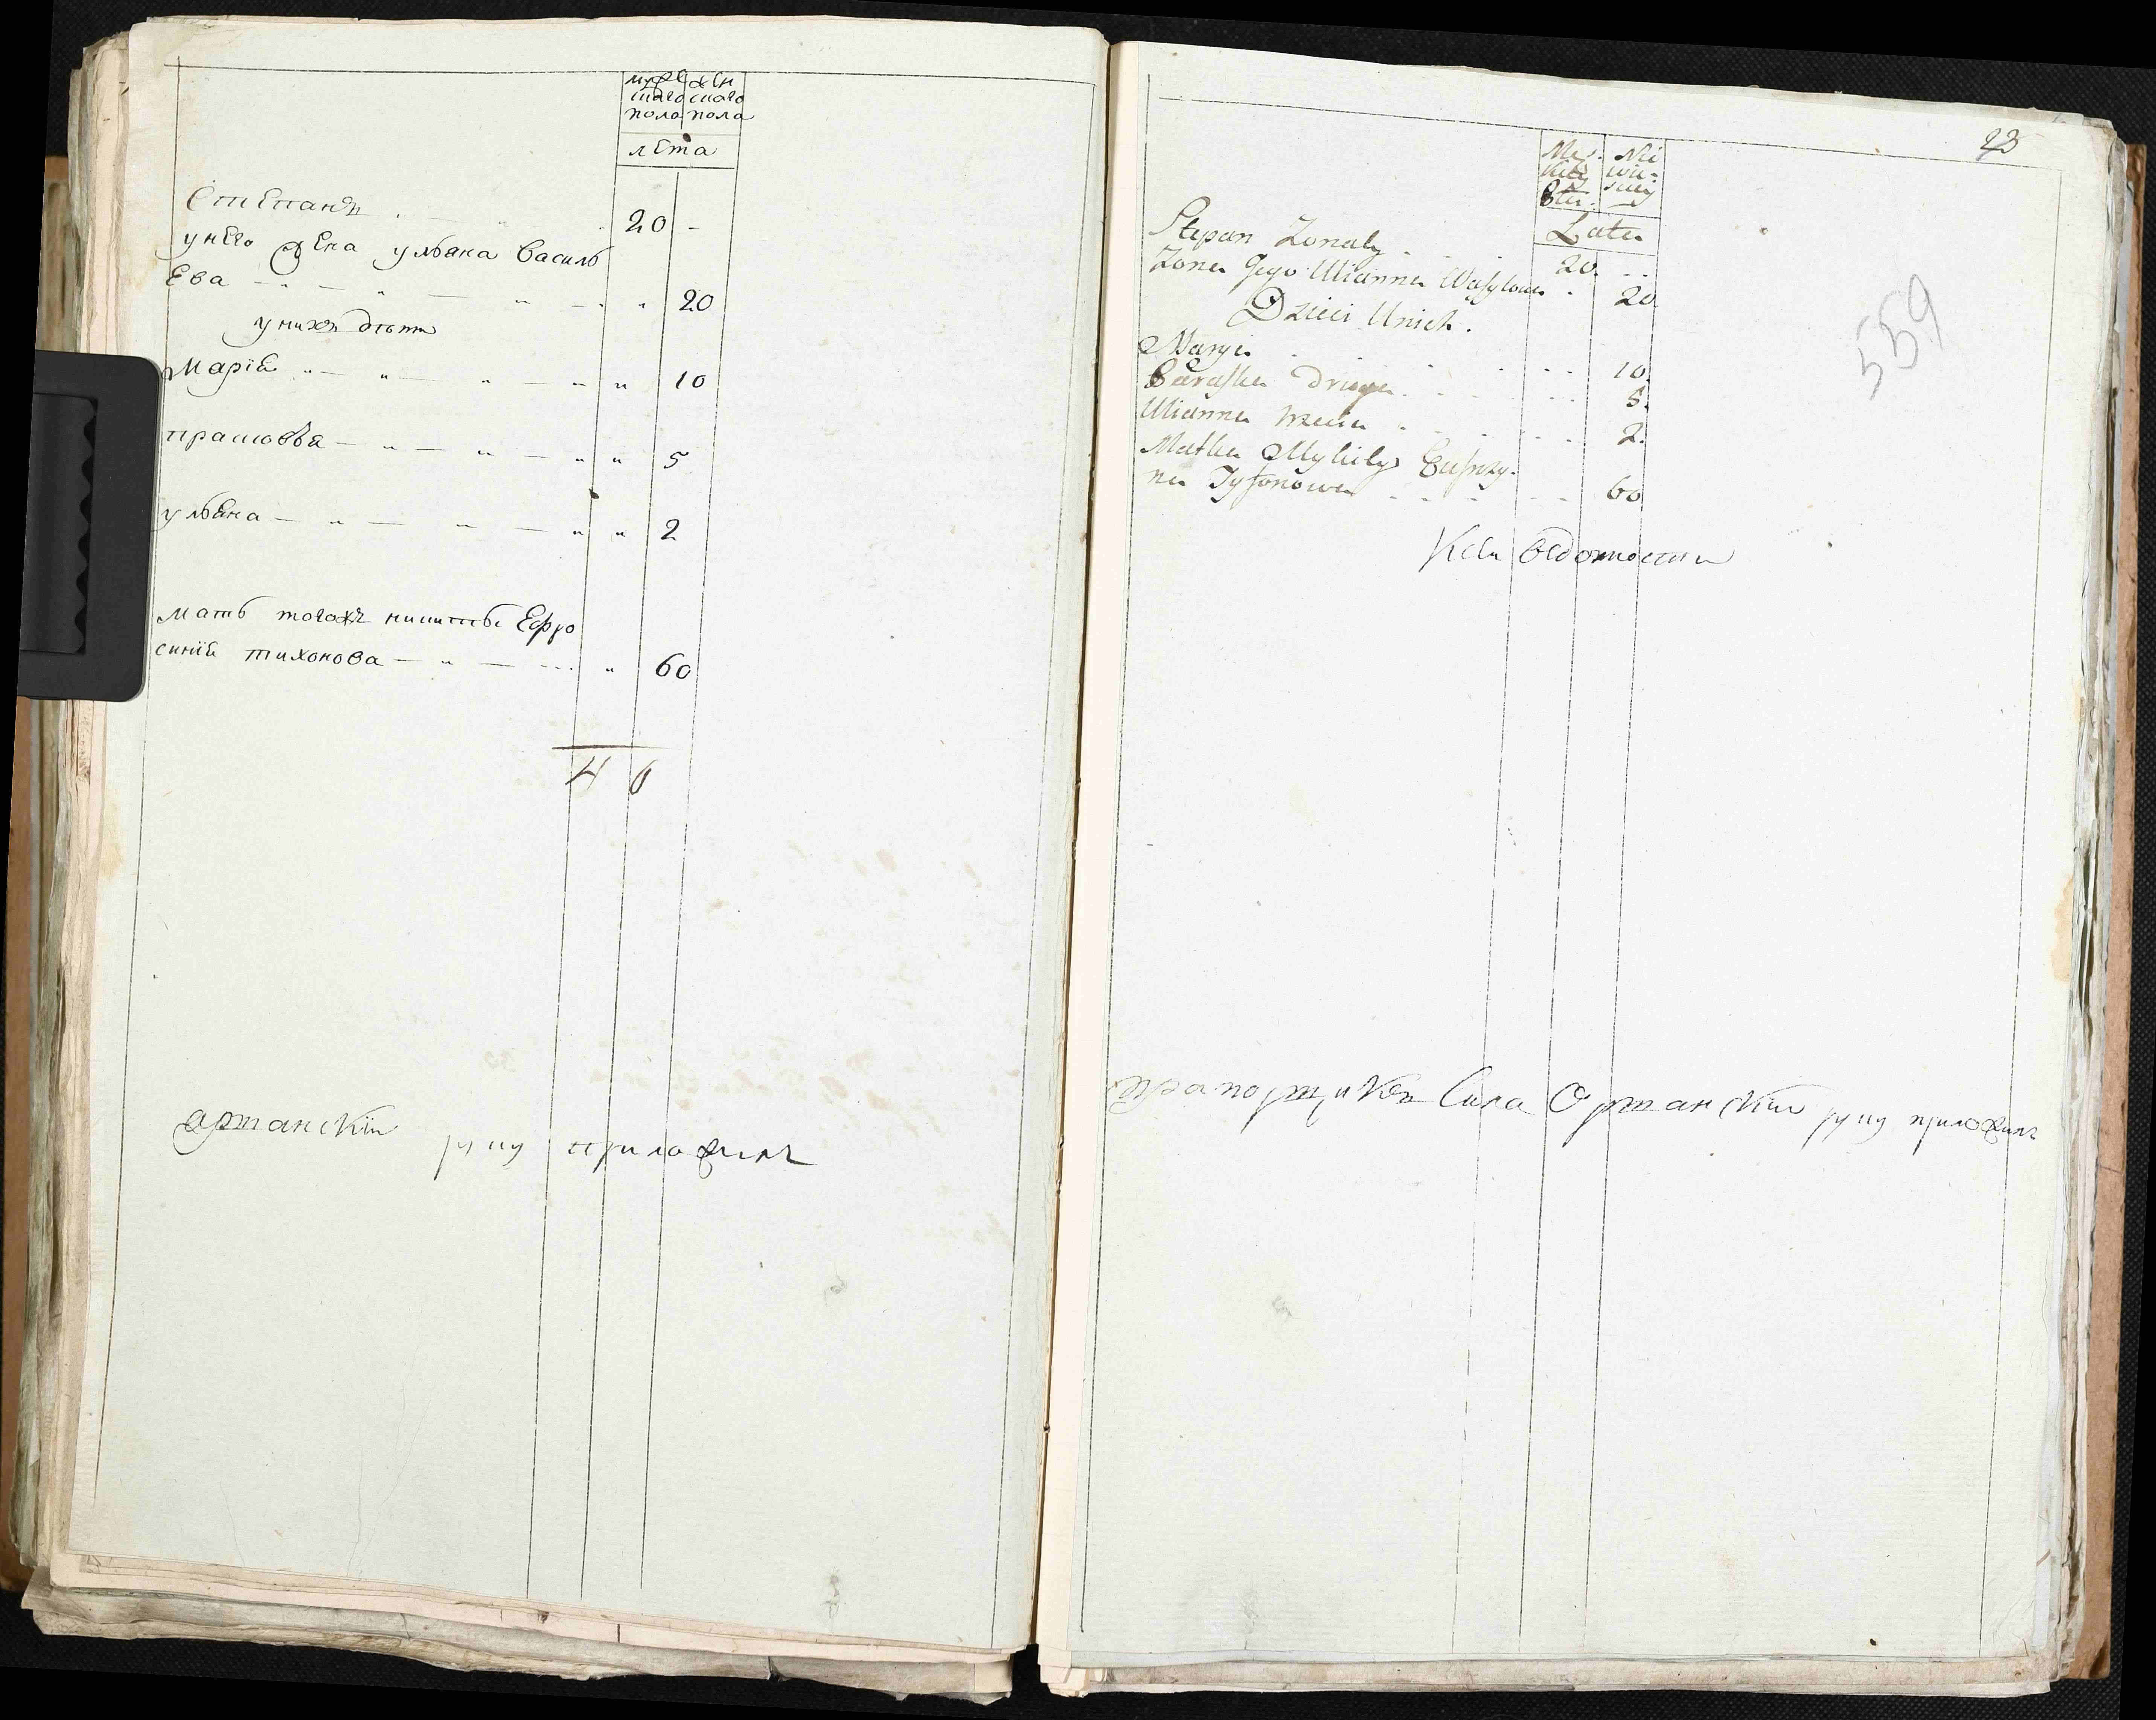 муже жен
скаго скаго
пола пола
лета
Степанъ 20 -
у него жена ульяна василь
ева 20
у нихъ дѣти
Марiя 10
прасковья 5
ульяна 2
мать тогожъ никиты Ефро
синiя тихонова 60
4 6
ортанскiй руку приложилъ
23
Lata
Stepan Zonaty 20
Zona Jego Ulianna Wasylowa 20
Dzieci Unich.
Marya 10
Paraska Druga 5.
Ulianna trzecia 2.
Matka Mykity Eufrozy-
na Tyfonowa 60
559
Ксеи ведомости
прапорщикъ Сила Ортанскiй руку приложилъ